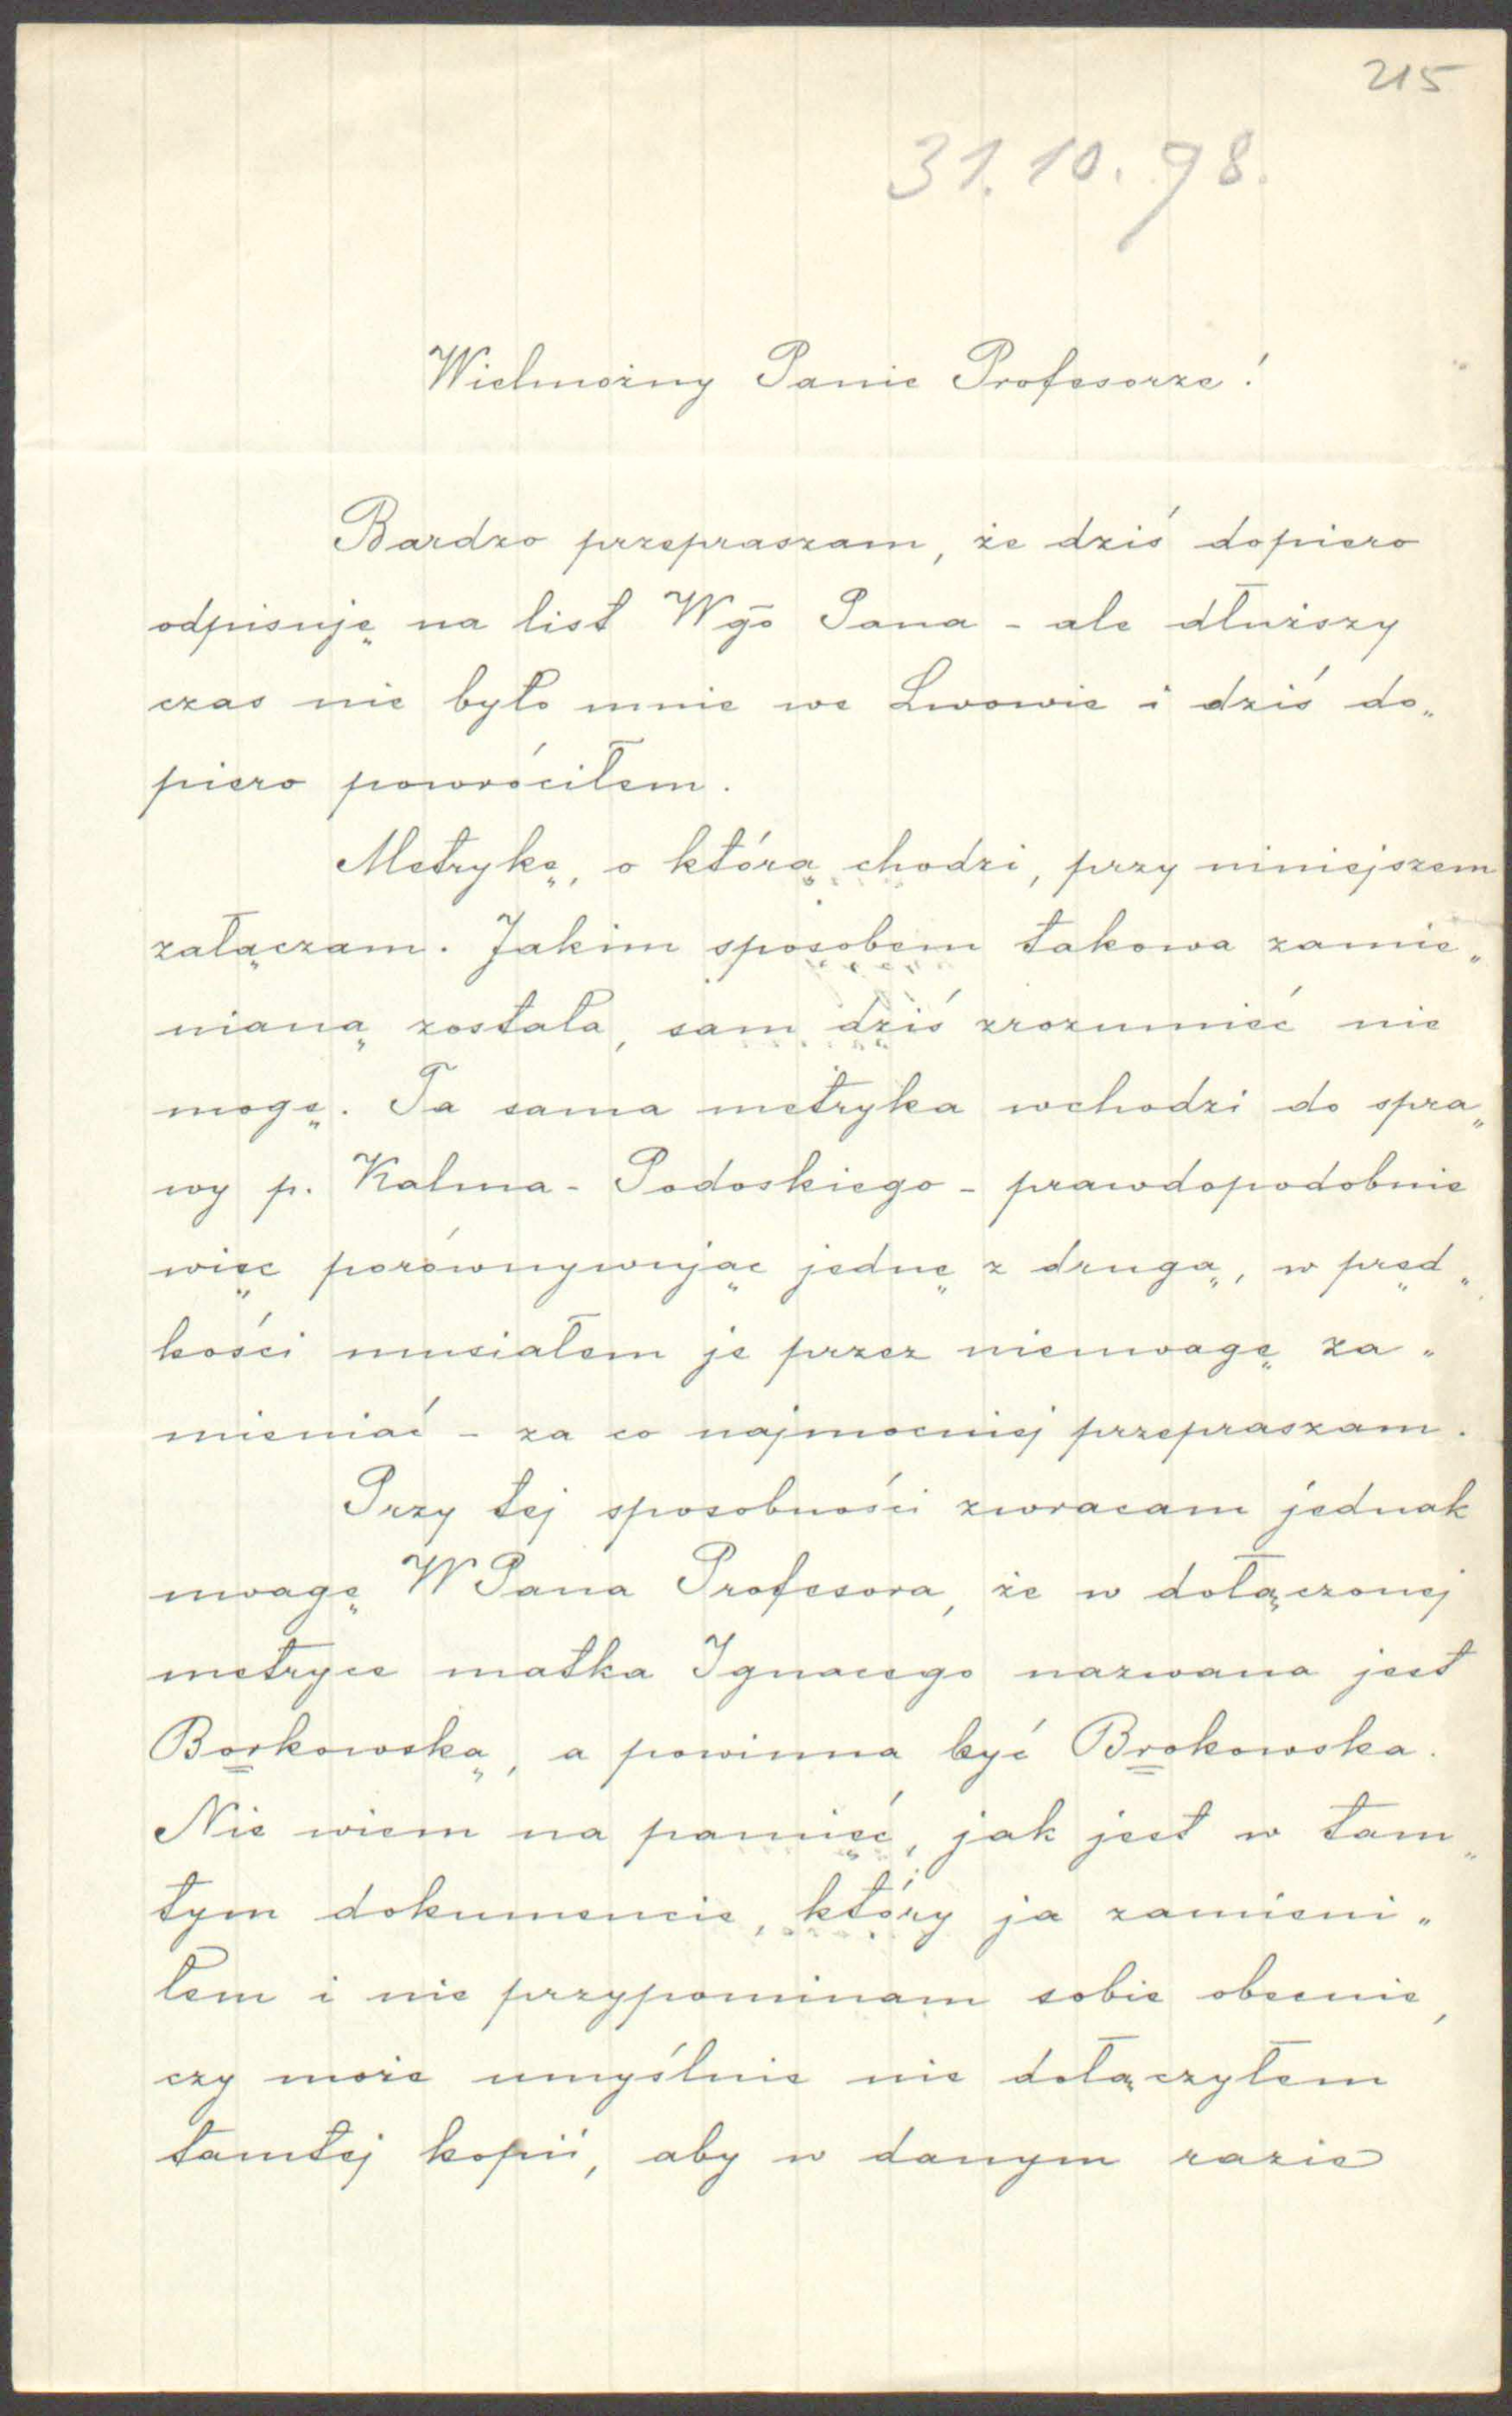 215
31.10.98.
Wielmożny Panie Profesorze!
Bardzo przepraszam, że dziś dopiero
odpisuję na list Wgo Pana - ale dłuższy
czas nie było mnie we Lwowie i dziś do„
piero powróciłem.
Metrykę, o którą chodzi, przy niniejszem
załączam. Jakim sposobem takowa zamie„
nianą została, sam dziś zrozumieć nie
mogę. Ta sama metryka wchodzi do spra„
wy p. Kalma-Podoskiego - prawdopodobnie
więc porównywując jednę z drugą, w pręd„
kości musiałem je przez nieuwagę za„
mieniać - za co najmocniej przepraszam.
Przy tej sposobności zwracam jednak
uwagę WPana Profesora, że w dołączonej
metryce matka Ignacego nazwana jest
Borkowską, a powinna być Brokowska.
Nie wiem na pamięć, jak jest w tam„
tym dokumencie, który ja zamieni„
łem i nie przypominam sobie obecnie,
czy może umyślnie nie dołączyłem
tamtej kopii, aby w danym razie